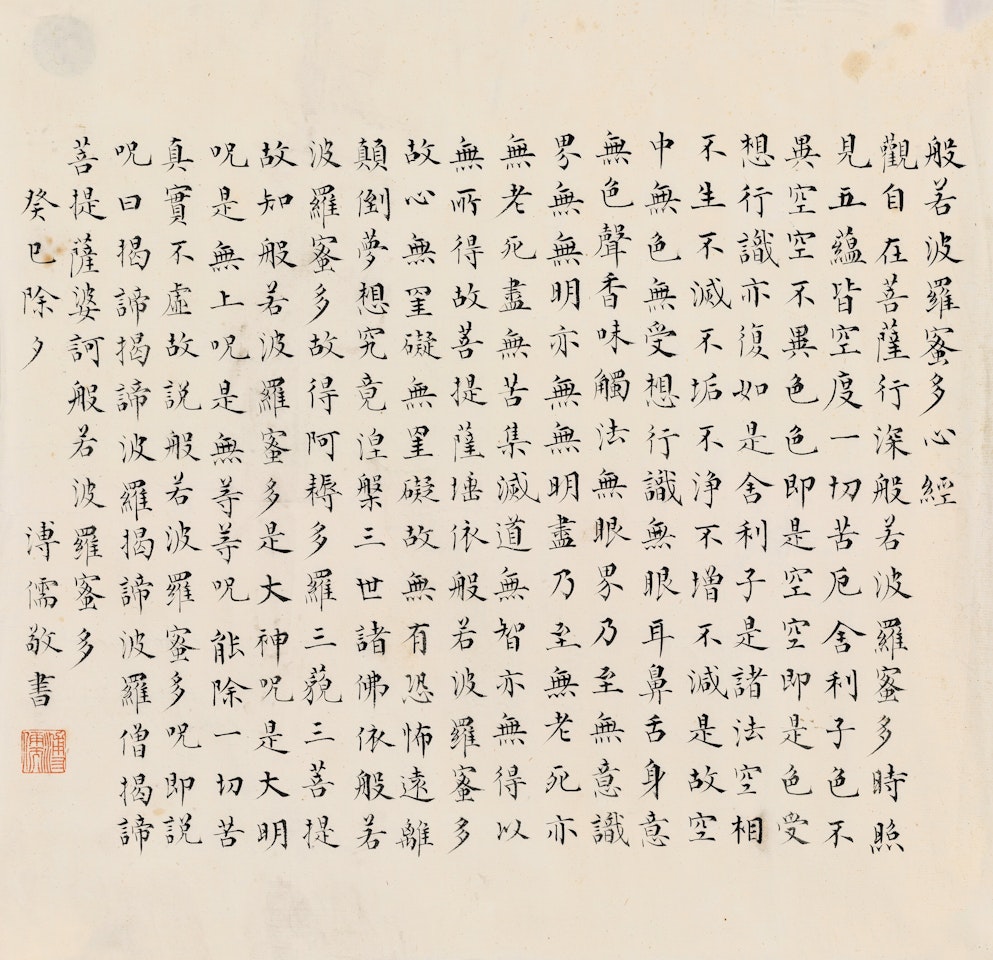 般若波羅蜜多心經
觀自在菩薩行深般若波羅蜜多時照
見五蘊皆空度一切苦厄舍利子色不
異空空不異色色即是空空即是色受
想行識亦復如是舍利子是諸法空相
不生不滅不垢不淨不增不減是故空
中無色無受想行識無眼耳鼻舌身意
無色聲香味觸法無眼界乃至無意識
界無無明亦無無明盡乃至無老死亦
無老死盡無苦集滅道無智亦無得以
無所得故菩提薩埵依般若波羅蜜多
故心無罣礙無罣礙故無有恐怖遠離
顛倒夢想究竟涅槃三世諸佛依般若
波羅蜜多故得阿耨多羅三藐三菩提
故知般若波羅蜜多是大神呪是大明
呪是無上呪是無等等呪能除一切苦
真實不虛故說般若波羅蜜多呪即說
呪曰揭諦揭諦波羅揭諦波羅僧揭諦
菩提薩婆訶般若波羅蜜多
癸巳除夕 溥儒敬書
溥儒